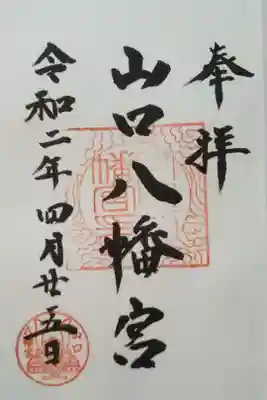 奉拝
山口八幡宮
令和二年四月廿五日